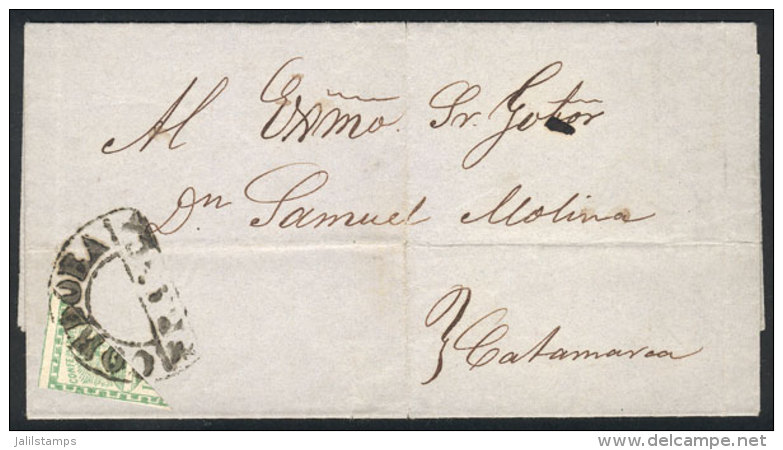 Al Exmo. Sr. Gobor
Dn Samuel Molina
Catamarca
CORDOBA
CONFE
jalilstamps
delcampe.net